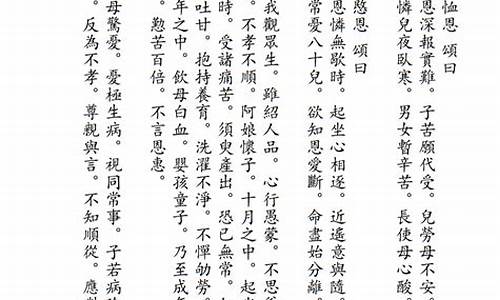 恤恩 頌曰
恩深報實難。子苦願代受。兒勞母不安
憐兒夜臥寒。男女暫辛苦。長使母心酸
愍恩 頌曰
恩憐無歇時。起坐心相逐。近遙意與隨
常憂八十兒。欲知恩愛斷。命盡始分離
我觀眾生。雖紹人品。心行愚蒙。不思
。不孝不順。阿娘懷子。十月之中。起
時。受諸痛苦。須臾產出。恐已無常。如
吐甘。抱持養育。洗濯不淨。不憚劬勞。
年之中。飲母白血。嬰孩童子。乃至成年
。懃苦百倍。不言恩惠。
母驚憂。憂極生病。視同常事。子若病
。反為不孝。尊親與言。不知順從。應